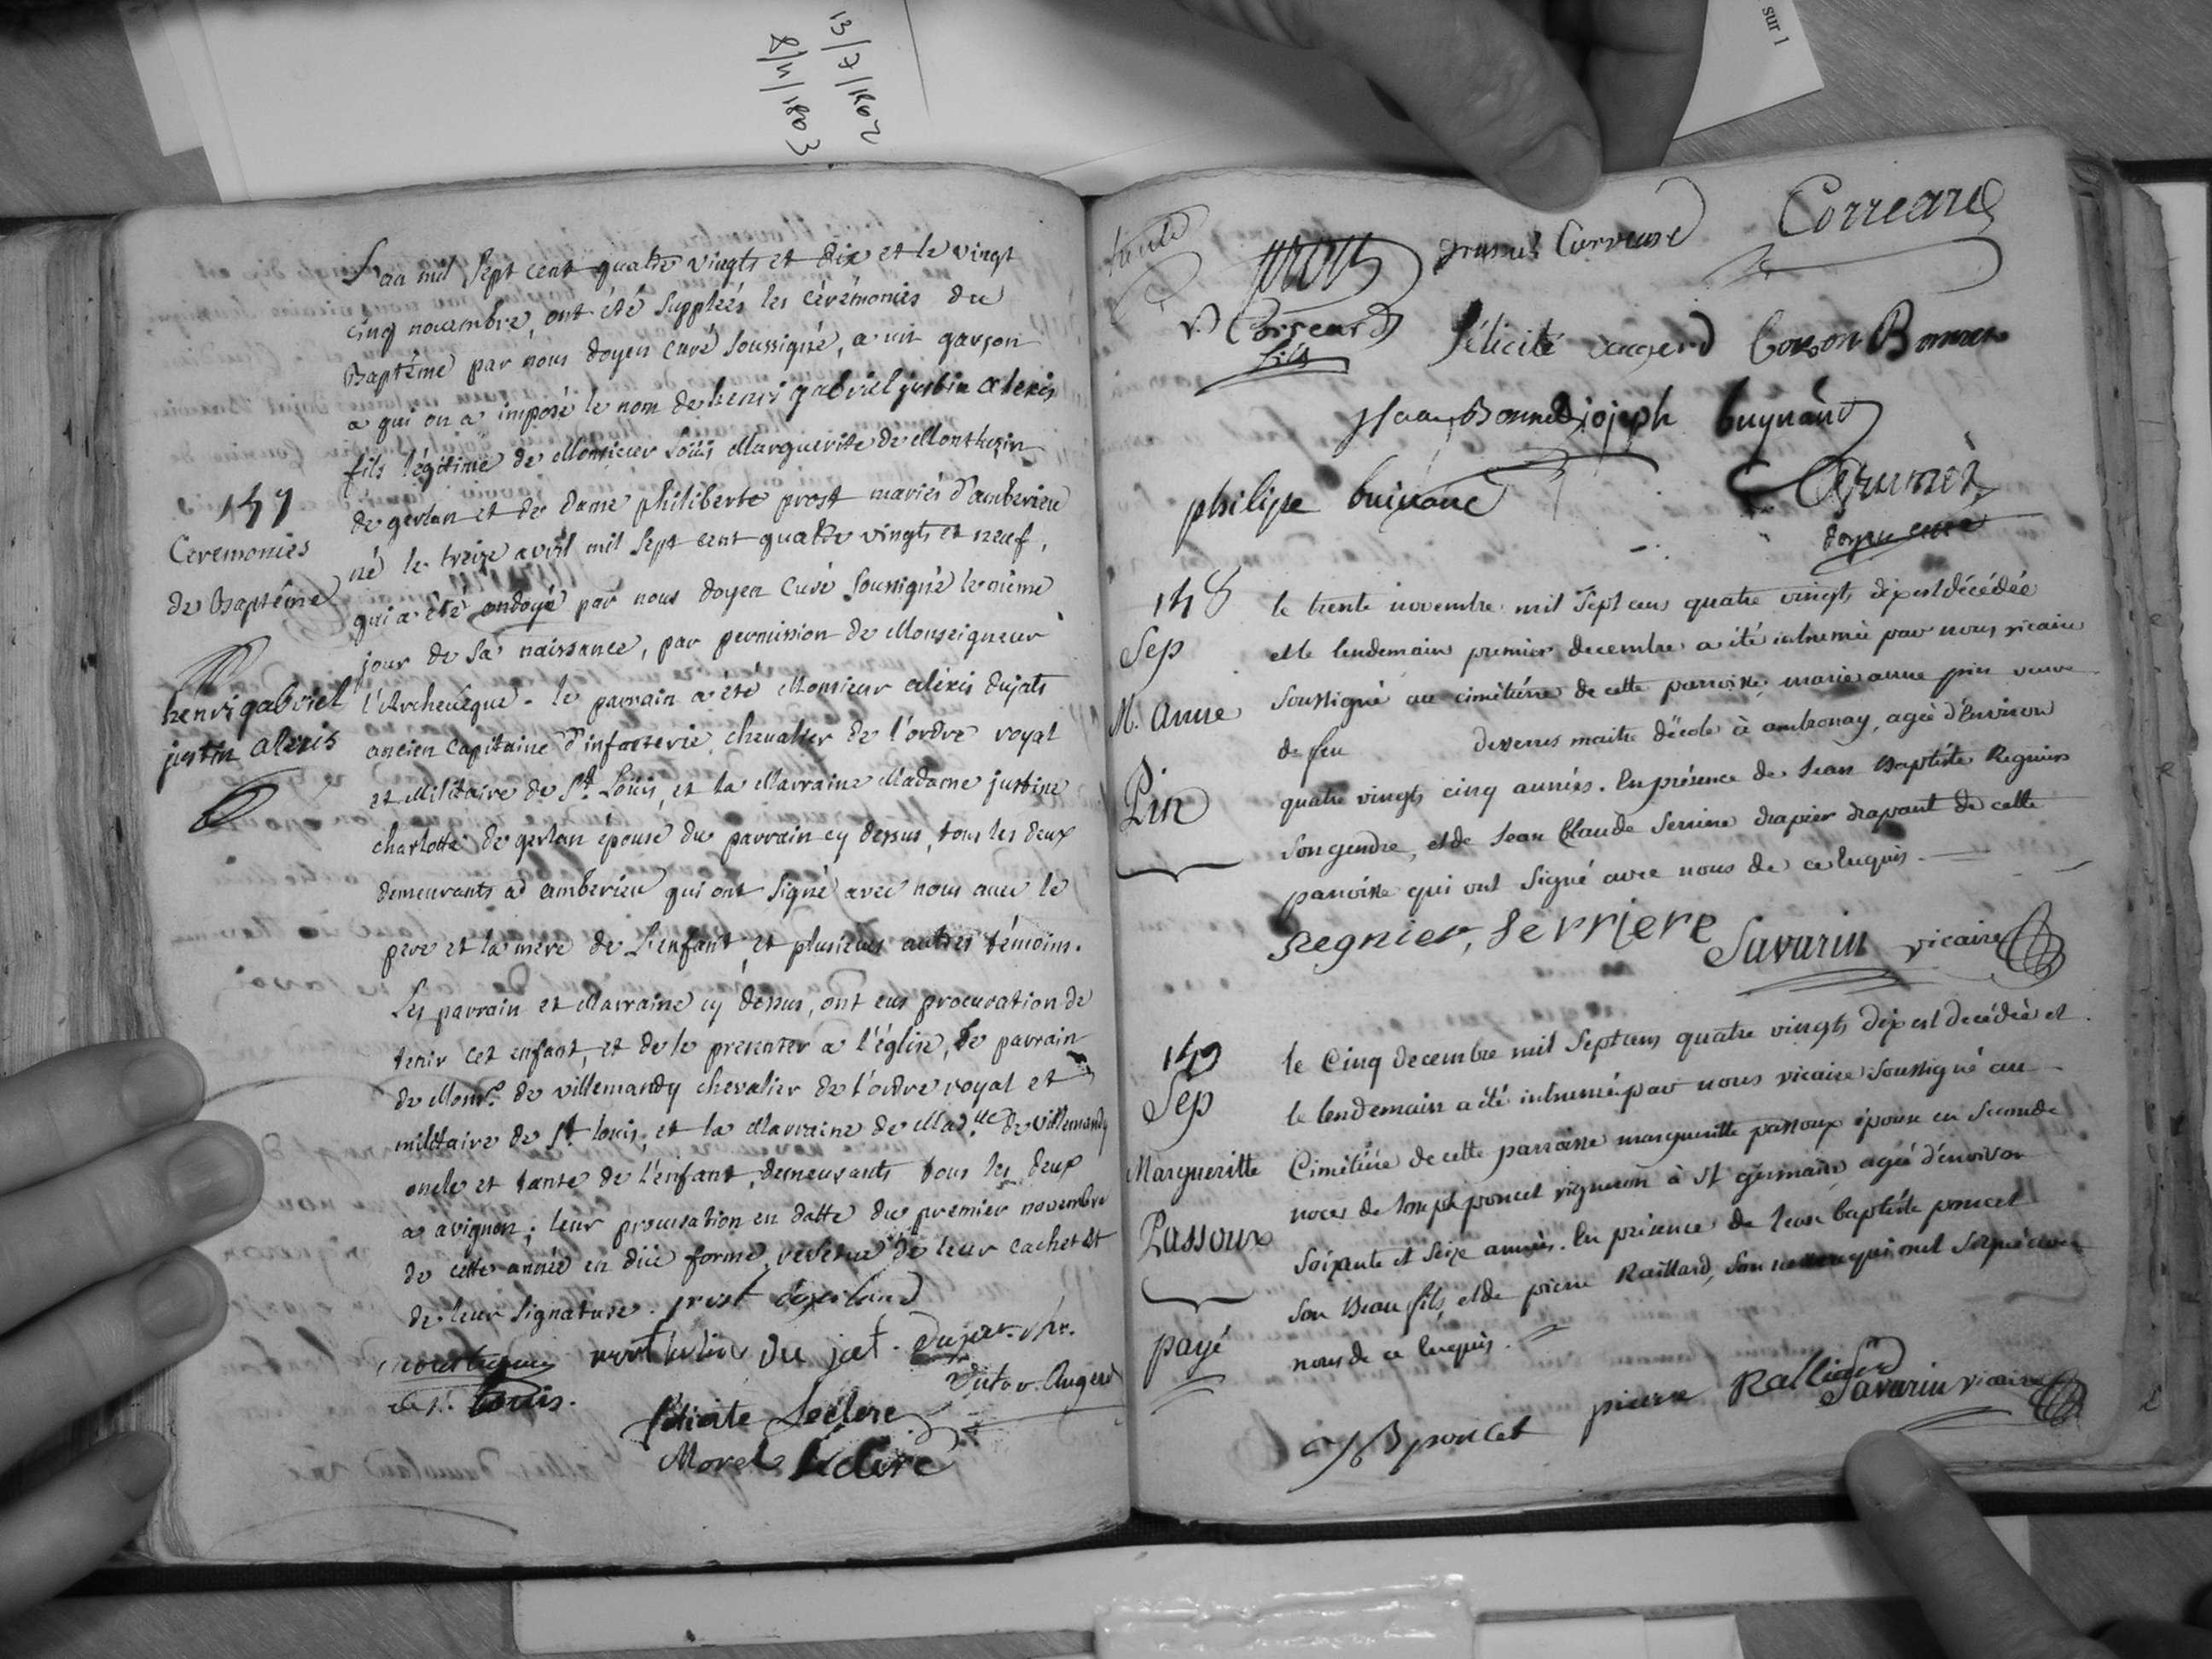 13/7/1802
8/11/1803
sur 1
L'an mil Sept cent quatre vingts et dix et le vingt
cinq novembre, ont été supplées les cérémonies du
Baptême par nous doyen curé soussigné, a un garçon
a qui on a imposé le nom de henri gabriel justin alexis
fils légitime de Monsieur Loüis Marguerite de Monthuzin
de gerlan et de dame philiberte prost mariés d'amberieu
né le treize avril mil Sept cent quatre vingts et neuf,
qui a été ondoyé par nous doyen Curé Soussigné le même
jour de sa naissance, par permission de Monseigneur
l'Archevêque. le parrain a été Monsieur alexis dujats
ancien Capitaine d'infanterie, chevalier de l'ordre royal
et Militaire de St. Loüis, et la Marraine Madame justine
charlotte de gerlan épouse du parrain cy dessus, tous les deux
demeurants ad amberieu qui ont signé avec nous avec le
pere et la mere de L'enfant, et plusieurs autres témoins.
Les parrain et Marraine cy dessus, ont eus procuration de
tenir cet enfant, et de le presenter a l'église, le parrain
de Monsr. de villemandy chevalier de l'ordre royal et
militaire de St. louis, et la Marraine de Mad.lle de villemandy
oncle et tante de l'enfant, demeurants tous les deux
a avignon; leur procuration en datte du premier novembre
de cette année en düe forme, revetue de leur cachet et
de leur signature. prost de gerland
du jat. Dujat. chr.
de st. Louis. Victor. Augerd
félicité Leclerc
Morel Leclerc
147
Ceremonies
de Baptême
henri gabriel
justin alexis
Correard
Correard
V. Correard
fils
félicité augerd Bonnet
Bonnet joseph buynand
philipe buinand
Grumet
doyen curé
148
Sep
M. Anne
Pin
le trente novembre mil Sept cens quatre vingts dix est décédée
et le lendemain premier decembre a été inhumée par nous vicaire
soussigné au cimétiére de cette parroisse, marie anne pin veuve
de feu desvernes maitre d'école à ambronay, agée d'Environ
quatre vingts cinq années. En présence de Jean Baptiste Regnier
son gendre, et de Jean Claude Serriere drapier drapant de cette
parroisse qui ont signé avec nous de ce Enquis.
Regnier, Serriere Savarin vicaire
149
Sep
Margueritte
Passoux
payé
le Cinq decembre mil Sept cens quatre vingts dix est decédée et
le lendemain a été inhumée par nous vicaire soussigné au
Cimétiére de cette parroisse margueritte passoux épouse en seconde
noces de Joseph poncet vigneron à St germain, agée d'environ
soixante et seize années. En présence de Jean baptiste poncet
son Beau fils, et de pierre Raillard, son qui ont signé avec
nous de ce Enquis.
JB poncet pierre Ralliard Savarin vicaire